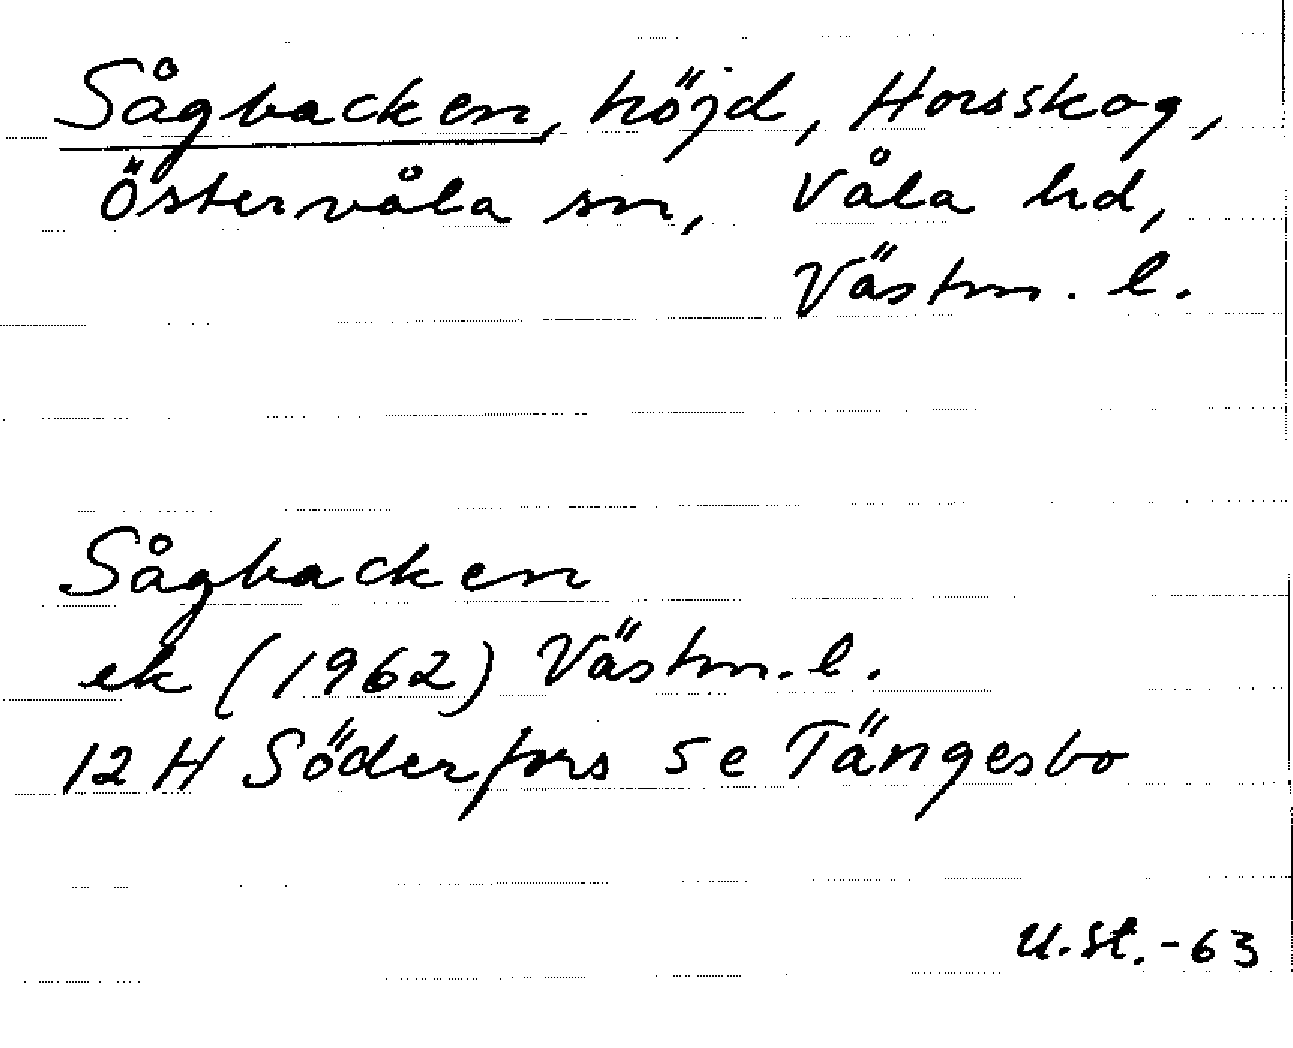 Sågbacken, höjd, Horsskog,
Östervåla sn, Våla hd,
Västm. l.
Sågbacken
ek (1962) Västm. l.
12 H Söderfors 5 e Tängesbo
U.St.-63